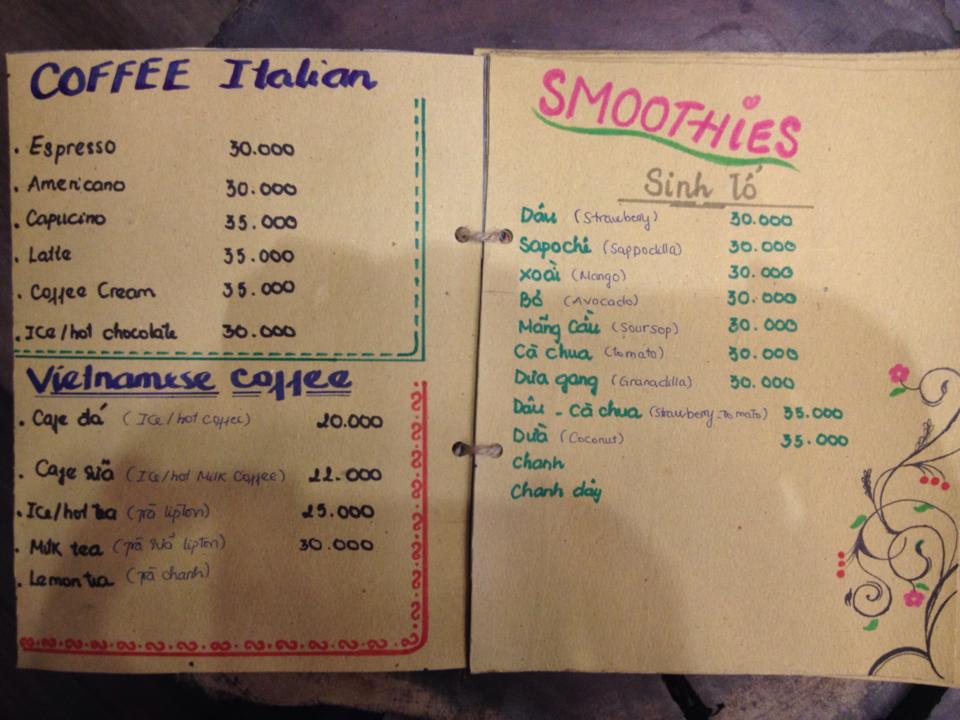 COFFEE Italian
. Espresso 30.000
. Americano 30.000
. Capucino 35.000
. Latte 35.000
. Coffee Cream 35.000
. Ice/hot chocolate 30.000
Vietnamese Coffee
. Cafe đá (Ice/hot coffei) 20.000
. Cafe sữa (Ice/hot Milk Coffee) 22.000
. Ice/hot tea (Trà lipton) 25.000
. Milk tea (Trà sữa lipton) 30.000
. Lemon tea (Trà chanh)
SMOOTHiES
Sinh Tố
Dâu (Strawberry) 30.000
Sapochê (Sappodilla) 30.000
Xoài (Mango) 30.000
Bơ (Avocado) 30.000
Mãng Cầu (Soursop) 30.000
Cà chua (tomato) 30.000
Dưa gang (Granadilla) 30.000
Dâu - Cà chua (Strawberry-tomato) 35.000
Dừa (Coconut) 35.000
Chanh
Chanh dây